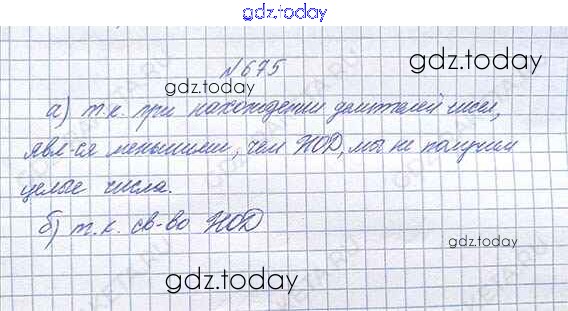 gdz.today
№675
gdz.today
gdz.today
а) т.к. при нахождении делителей чисел,
явл-ся меньшими, чем НОД, мы не получим
целые числа.
б) т.к. св-во НОД
gdz.today
gdz.today